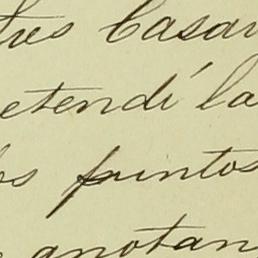 tres Casan
etendí la
os puntos
anotan